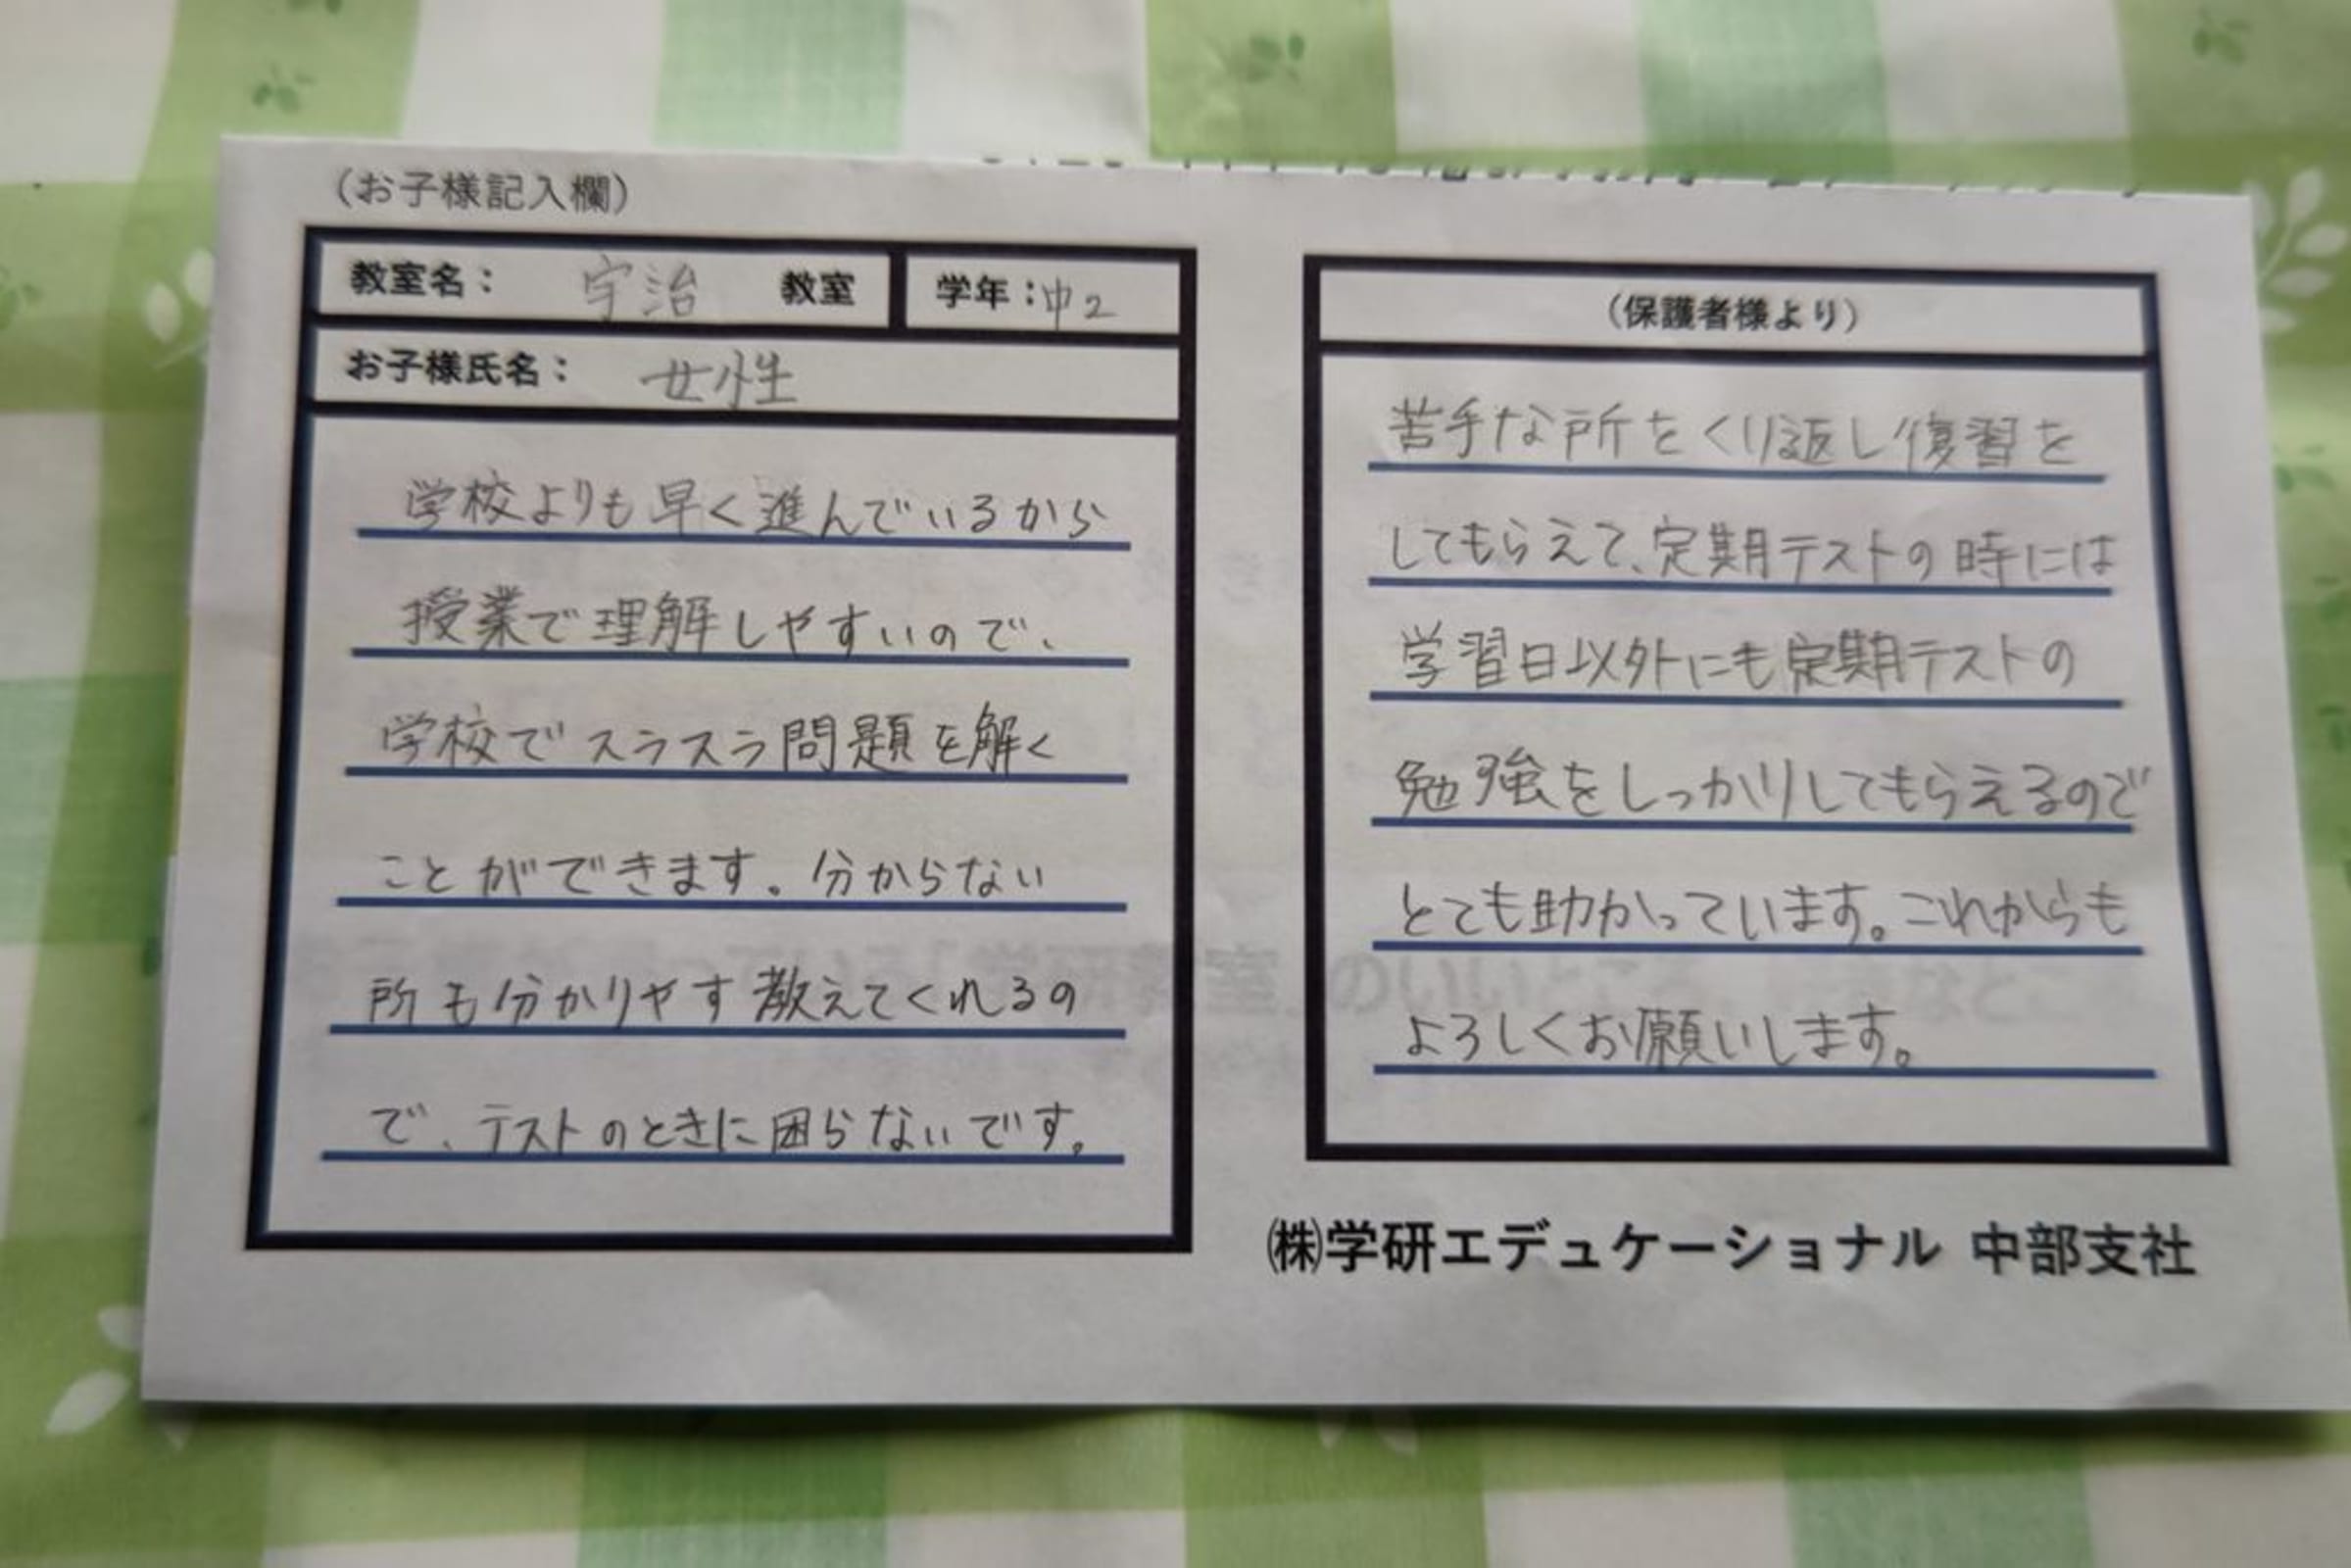 (お子様記入欄)
教室名： 宇治 教室 学年：中2
お子様氏名： 女性
学校よりも早く進んでいるから
授業で理解しやすいので、
学校でスラスラ問題を解く
ことができます。分からない
所も分かりやす教えてくれるの
で、テストのときに困らないです。
(保護者様より)
苦手な所をくり返し復習を
してもらえて、定期テストの時には
学習日以外にも定期テストの
勉強をしっかりしてもらえるので
とても助かっています。これからも
よろしくお願いします。
㈱学研エデュケーショナル 中部支社